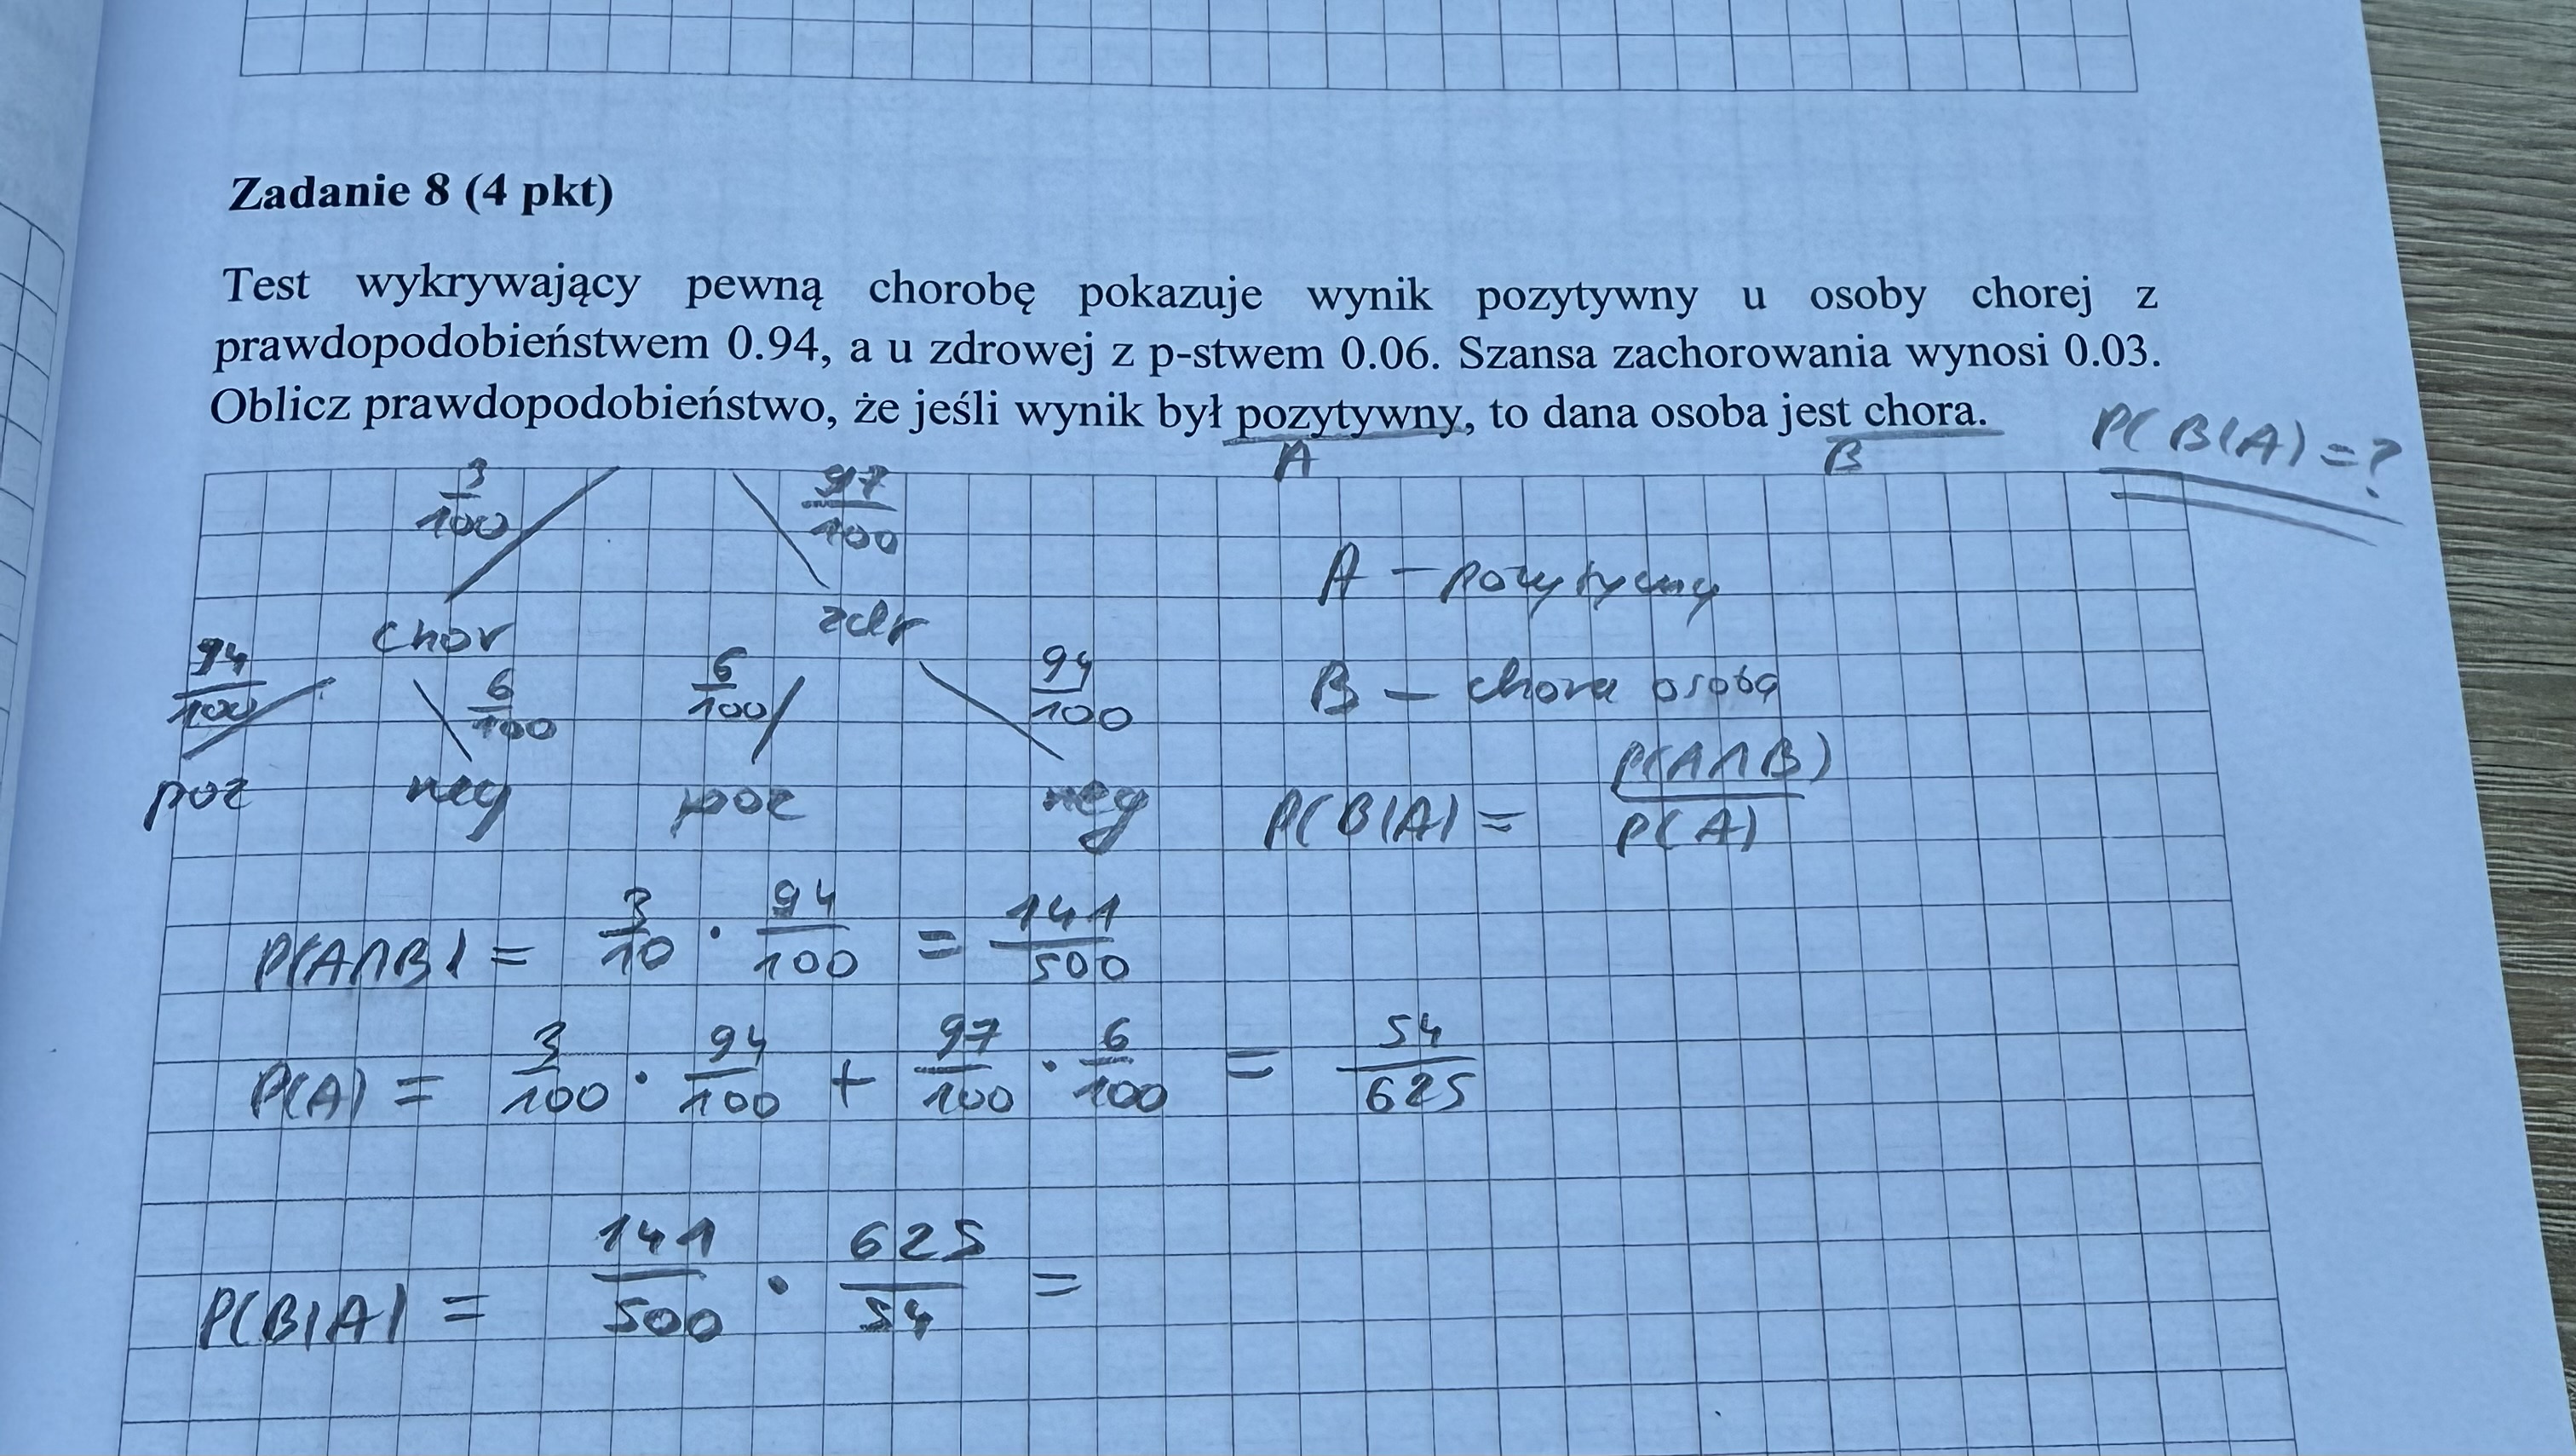 Zadanie 8 (4 pkt)
Test wykrywający pewną chorobę pokazuje wynik pozytywny u osoby chorej z
prawdopodobieństwem 0.94, a u zdrowej z p-stwem 0.06. Szansa zachorowania wynosi 0.03.
Oblicz prawdopodobieństwo, że jeśli wynik był pozytywny, to dana osoba jest chora.
A B P(B|A) = ?
3/100 97/100
A – pozytywny
chor zdr
94/100 6/100 6/100 94/100
B – chora osoba
poz neg poz neg
P(B|A) = P(A∩B)/P(A)
P(A∩B) = 3/10 · 94/100 = 141/500
P(A) = 3/100 · 94/100 + 97/100 · 6/100 = 54/625
P(B|A) = 141/500 · 625/54 =